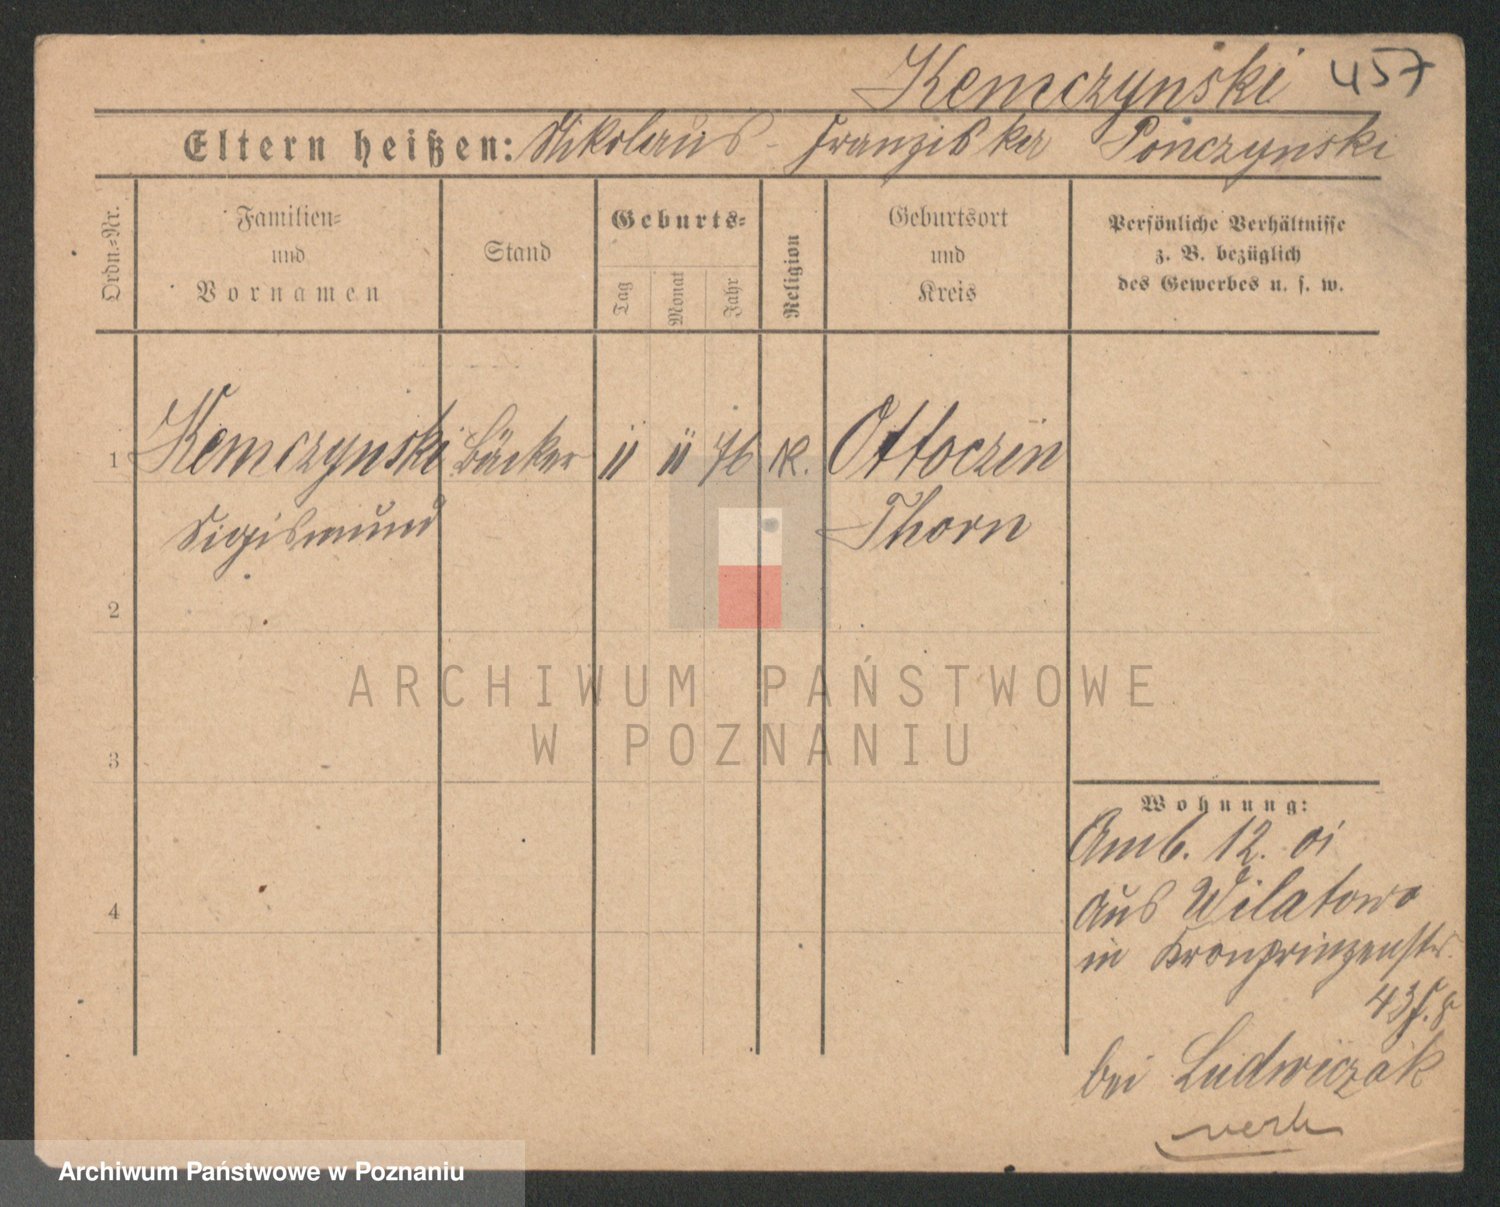 Kemczynski 457
Eltern heißen: Nikolaus - Franziska Ponczynski
Ordn.=Nr.
Familien=
und
Vornamen
Stand
Geburts=
Tag
Monat
Jahr
Religion
Geburtsort
und
Kreis
Persönliche Verhältnisse
z. B. bezüglich
des Gewerbes u. s. w.
1 Kemczynski Bäcker 11 11 76 K. Ottoczin
Sigismund Thorn
2
ARCHIWUM PAŃSTWOWE
W POZNANIU
3
Wohnung:
Amb. 12. 01
aus Wilatowo
in Kronprinzenstr.
4
43
bei Ludwiczak
verh
Archiwum Państwowe w Poznaniu